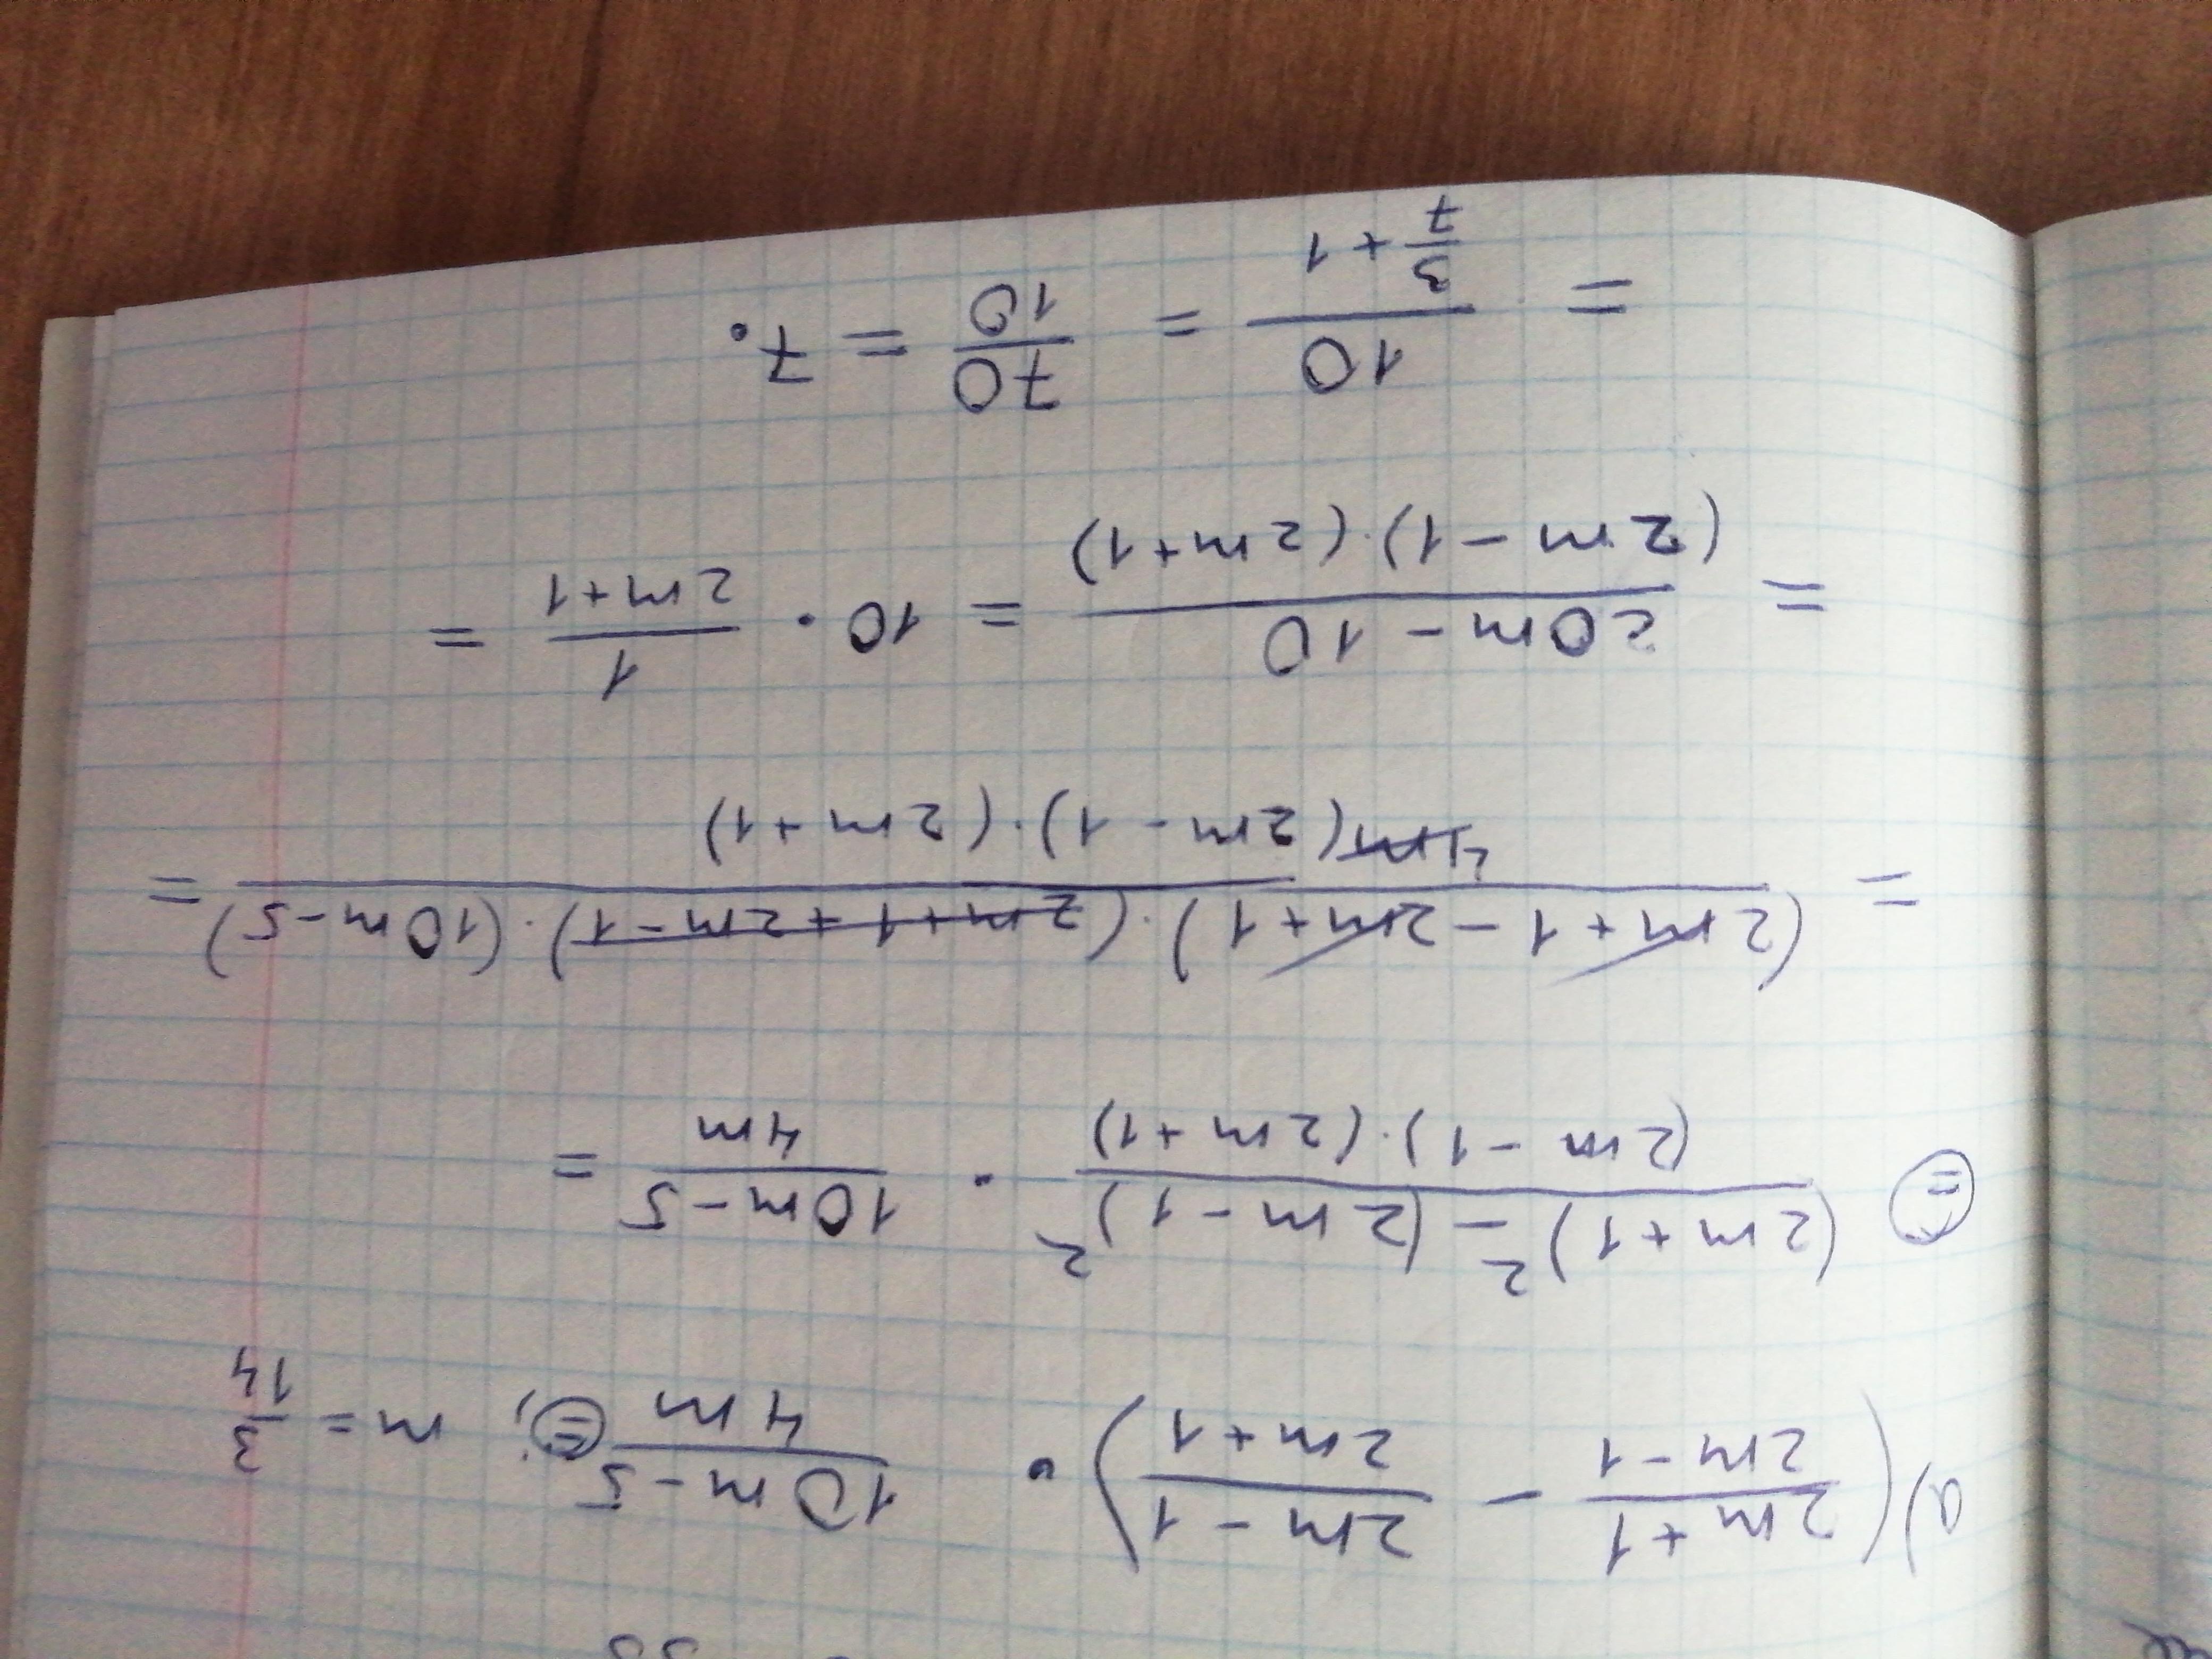 a) ( (2m+1)/(2m-1) - (2m-1)/(2m+1) ) · (10m-5)/(4m) (=); m = 3/14
(=) ((2m+1)² - (2m-1)²)/((2m-1)·(2m+1)) · (10m-5)/(4m) =
= ((2m+1-2m+1)·(2m+1+2m-1)·(10m-5))/(4m(2m-1)·(2m+1)) =
= (20m-10)/((2m-1)·(2m+1)) = 10 · 1/(2m+1) =
= 10/(3/7+1) = 70/10 = 7.